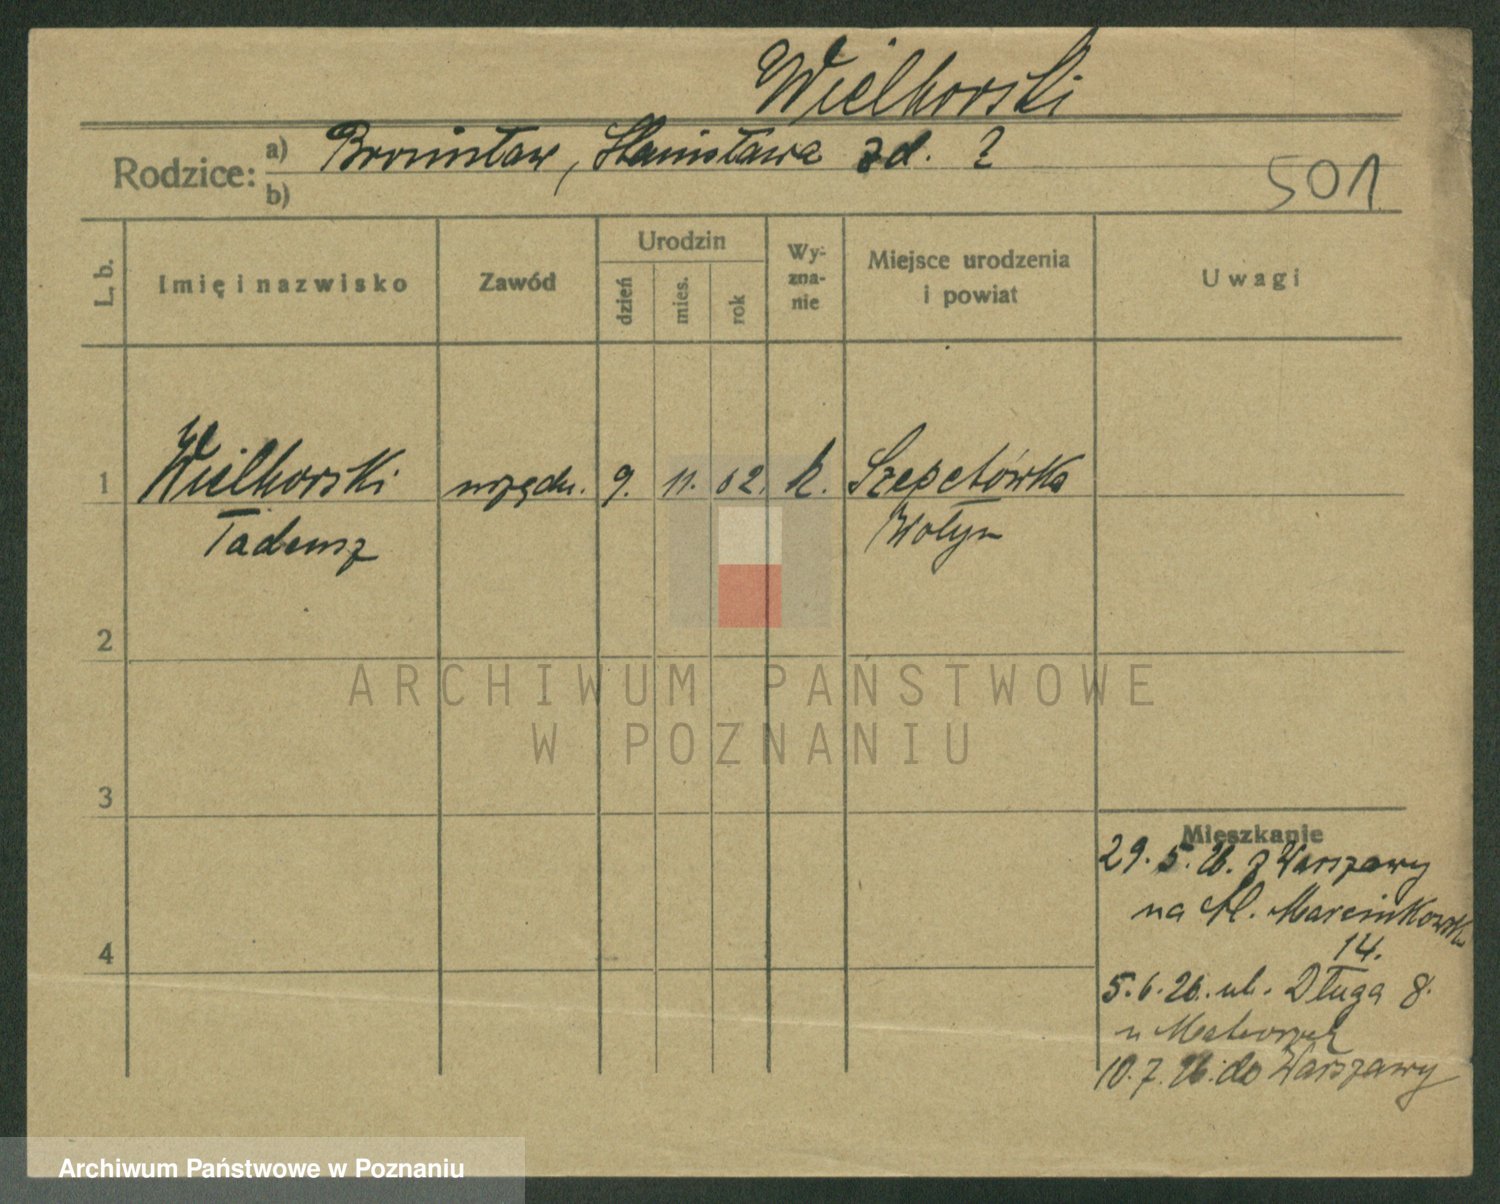 Wielhorski
Rodzice: a) Bronisław, Stanisława zd. ?
b)
501
L. b.
Imię i nazwisko
Zawód
Urodzin
dzień
mies.
rok
Wy-
zna-
nie
Miejsce urodzenia
i powiat
Uwagi
1 Wielhorski urzędn. 9. 11. 02. k. Szepetówka
Tadeusz Wołyn
2
3
4
Mieszkanie
29. 5. 26. z Warszawy
na Al. Marcinkowsk
14.
5. 6. 26. ul. Długa 8.
u
10. 7. 26. do Warszawy
ARCHIWUM PAŃSTWOWE
W POZNANIU
Archiwum Państwowe w Poznaniu